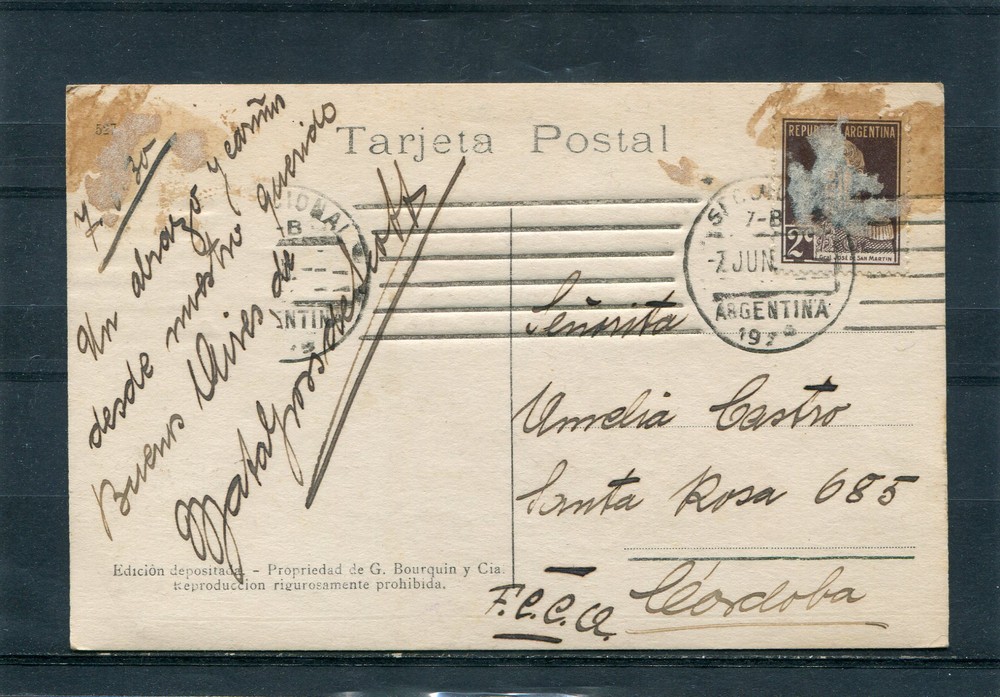 527
Tarjeta Postal
Un abrazo y cariños
desde nuestro querido
Buenos Aires de
REPUBLICA ARGENTINA
2c
Gral. JOSE DE SAN MARTIN
7-B
-7 JUN
ARGENTINA
Señorita
Amelia Castro
Santa Rosa 685
Córdoba
F.C.C.A.
Edición depositada. - Propriedad de G. Bourquin y Cia.
Reproduccion rigurosamente prohibida.